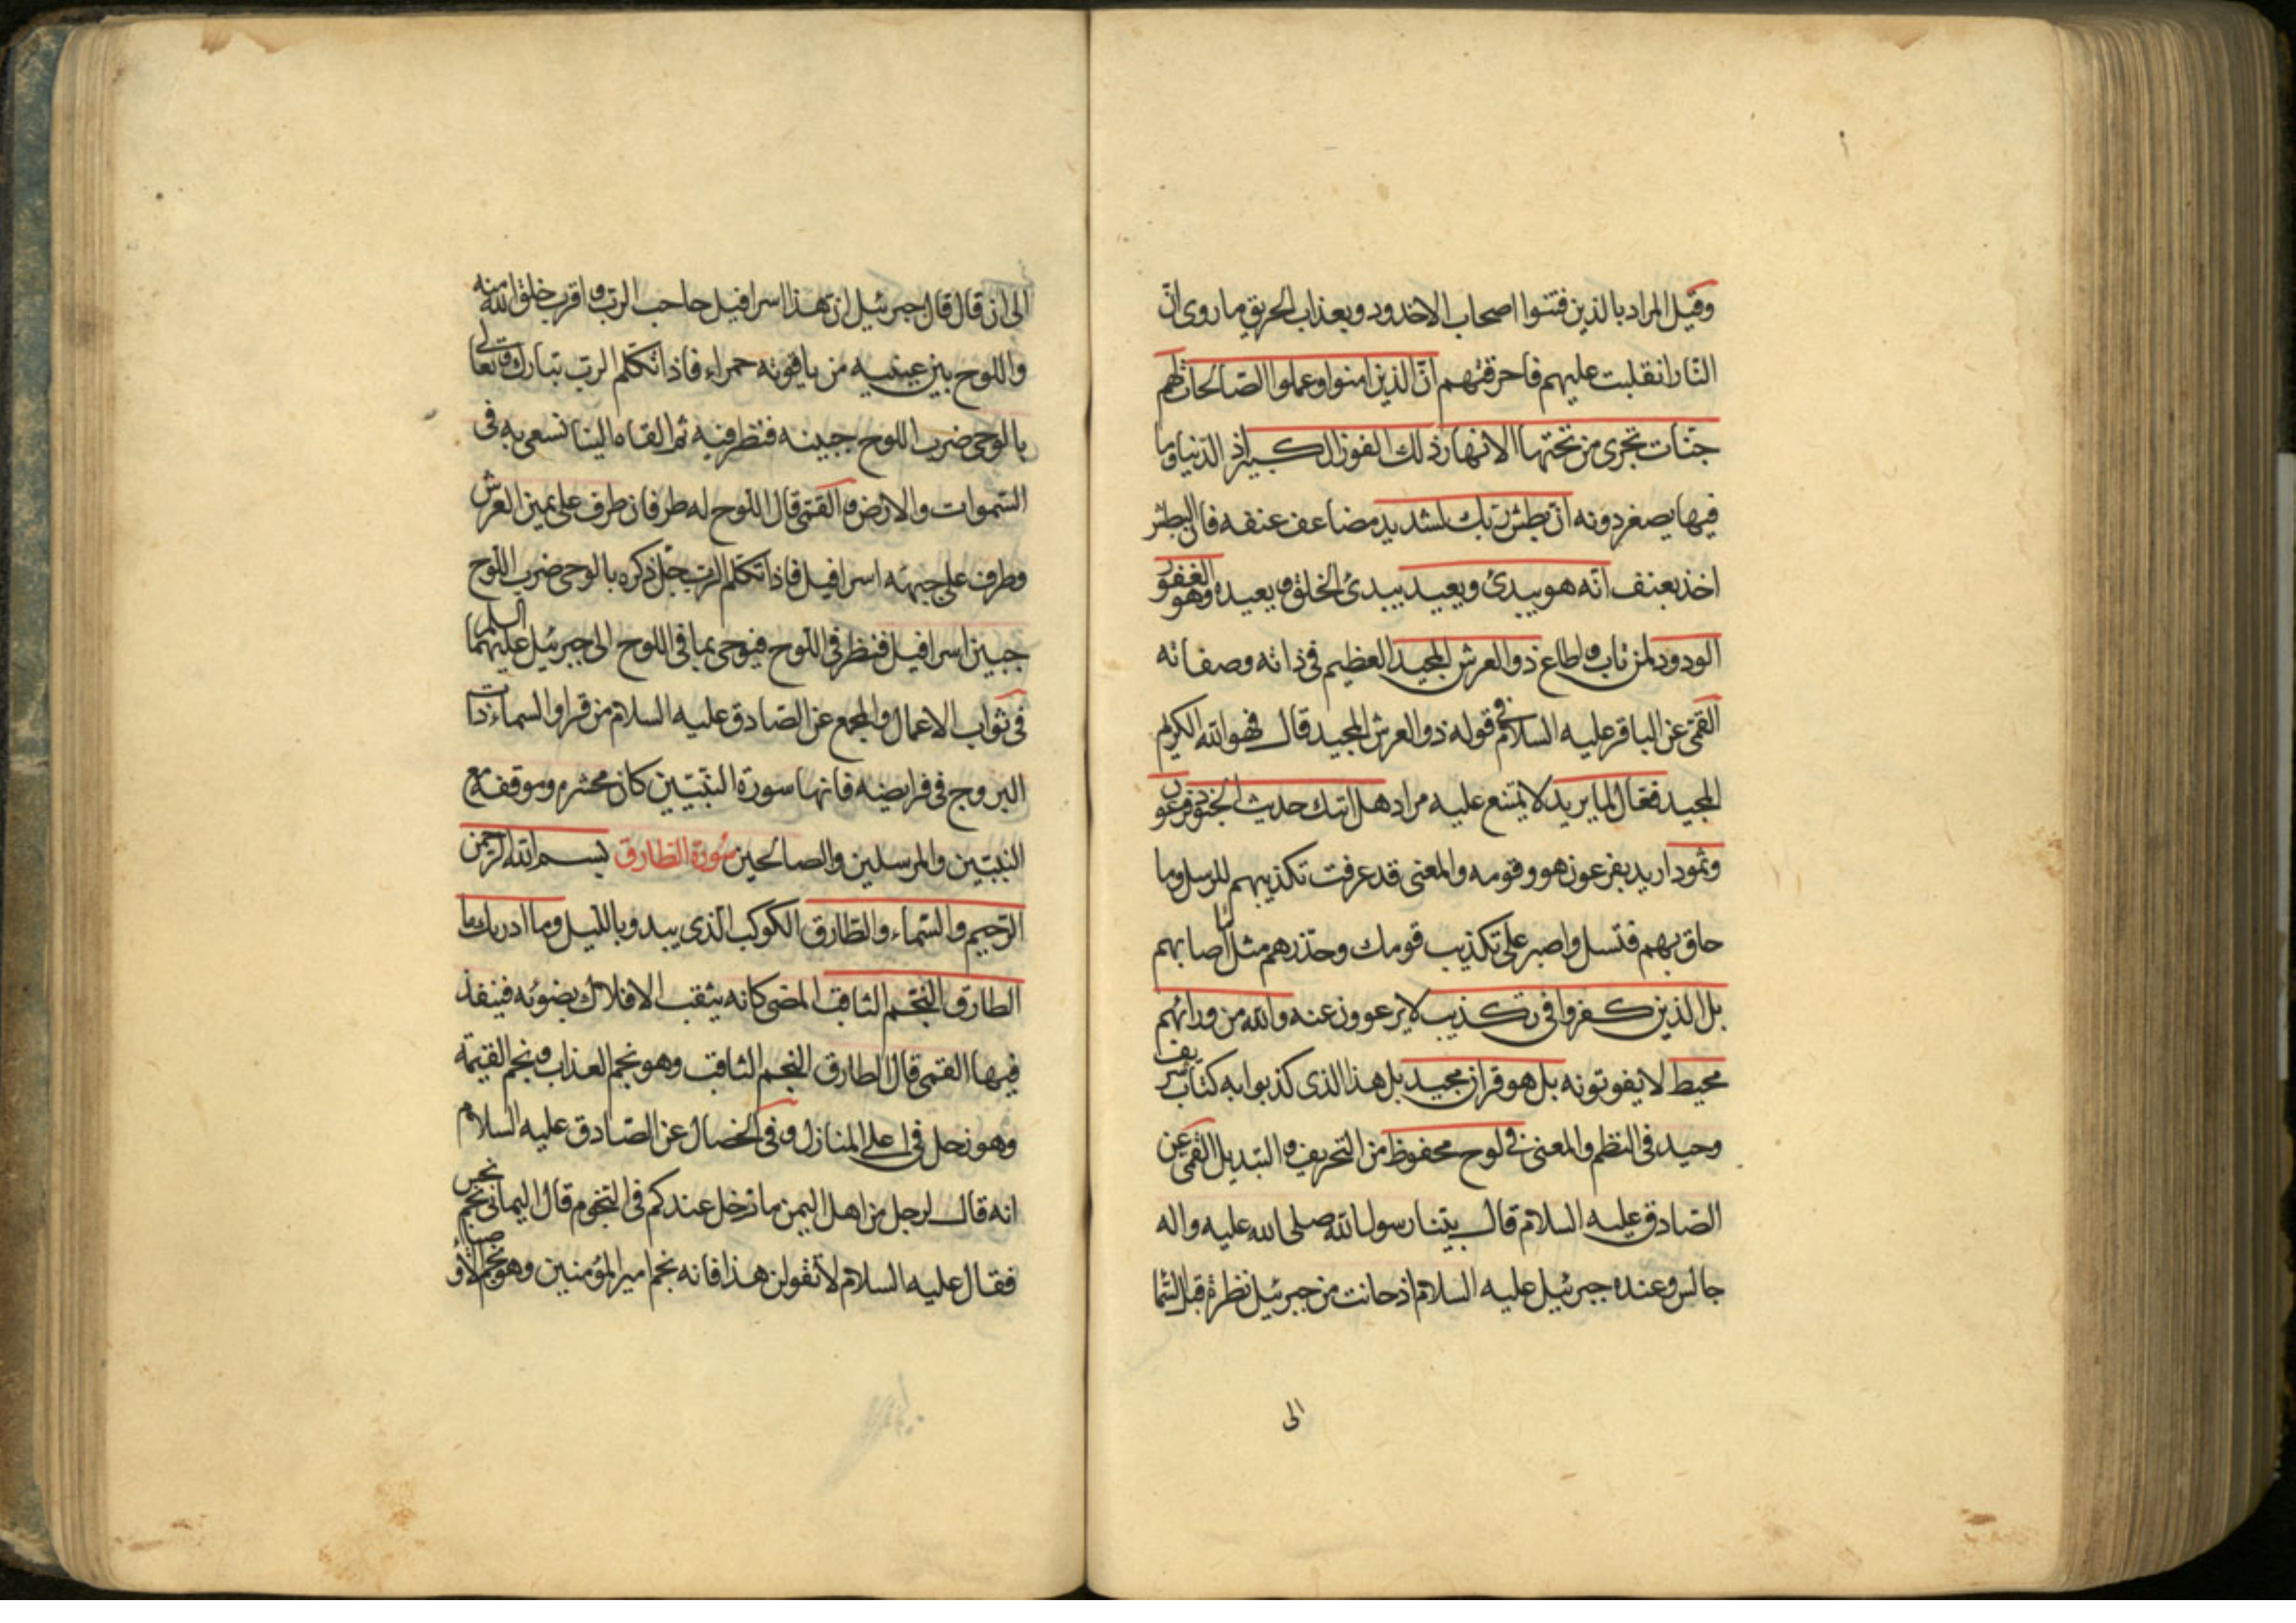 وقيل المراد بالذين فتنوا اصحاب الاخدود وبعذاب الحريق ما روى انّ
النّار انقلبت عليهم فاحرقتهم انّ الذين امنوا وعملوا الصّالحات لهم
جنّات تجرى من تحتها الانهار ذلك الفوز الكبير اذ الدّنيا وما
فيها يصغر دونه انّ بطش ربّك لشديد مضاعف عنفه فان البطش
اخذ بعنف انّه هو يبدئ ويعيد يبدئ الخلق ويعيده وهو الغفور
الودود لمن تاب واطاع ذو العرش المجيد العظيم فى ذاته وصفاته
القمّى عن الباقر عليه السلام فى قوله ذو العرش المجيد قال فهو الله الكريم
المجيد فعّال لما يريد لا يمتنع عليه مراد هل اتيك حديث الجنود فرعون
وثمود اريد بفرعون هو وقومه والمعنى قد عرفت تكذيبهم للرسل وما
حاق بهم فتسل واصبر على تكذيب قومك وحذّرهم مثل ما اصابهم
بل الذين كفروا فى تكذيب لا يرعوون عنه والله من ورائهم
محيط لا يفوتونه بل هو قران مجيد بل هذا الذى كذبوا به كتاب شريف
وحيد فى النظم والمعنى فى لوح محفوظ من التحريف والتبديل القمّى عن
الصّادق عليه السلام قال بيتنا رسول الله صلى الله عليه واله
جالس وعنده جبرئيل عليه السلام اذ حانت من جبرئيل نظرة قبل السّما
الى
الى ان قال قال جبرئيل ان هذا اسرافيل حاجب الربّ واقرب خلق الله منه
واللوح بين عينيه من ياقوتة حمراء فاذا تكلّم الربّ تبارك وتعالى
بالوحى ضرب اللوح جبينه فنظر فيه ثم القاه الينا نسعى به فى
السّموات والارض والقمّى قال اللّوح له طرفان طرف على يمين العرش
وطرف على جبهة اسرافيل فاذا تكلّم الربّ جلّ ذكره بالوحى ضرب اللّوح
جبين اسرافيل فنظر فى اللّوح فيوحى بما فى اللوح الى جبرئيل عليهما السلم
فى ثواب الاعمال والمجمع عن الصّادق عليه السلام من قرا والسماء ذات
البروج فى فرايضه فانها سورة النّبيّين كان محشره وموقفه مع
النّبيّين والمرسلين والصالحين سورة الطارق بسم الله الرّحمن
الرّحيم والسّماء والطّارق الكوكب الّذى يبدو باللّيل وما ادريك ما
الطارق النّجم الثاقب المضى كانه يثقب الافلاك بضوئه فينفذ
فيها القمى قال الطارق النّجم الثاقب وهو نجم العذاب ونجم القيمة
وهو زحل فى اعلى المنازل وفى الخصال عن الصّادق عليه السلام
انه قال لرجل من اهل اليمن ما زحل عندكم فى النّجوم قال اليمانى نجم نحس
فقال عليه السلام لا تقولن هذا فانه نجم امير المؤمنين وهو نجم الاوصياء